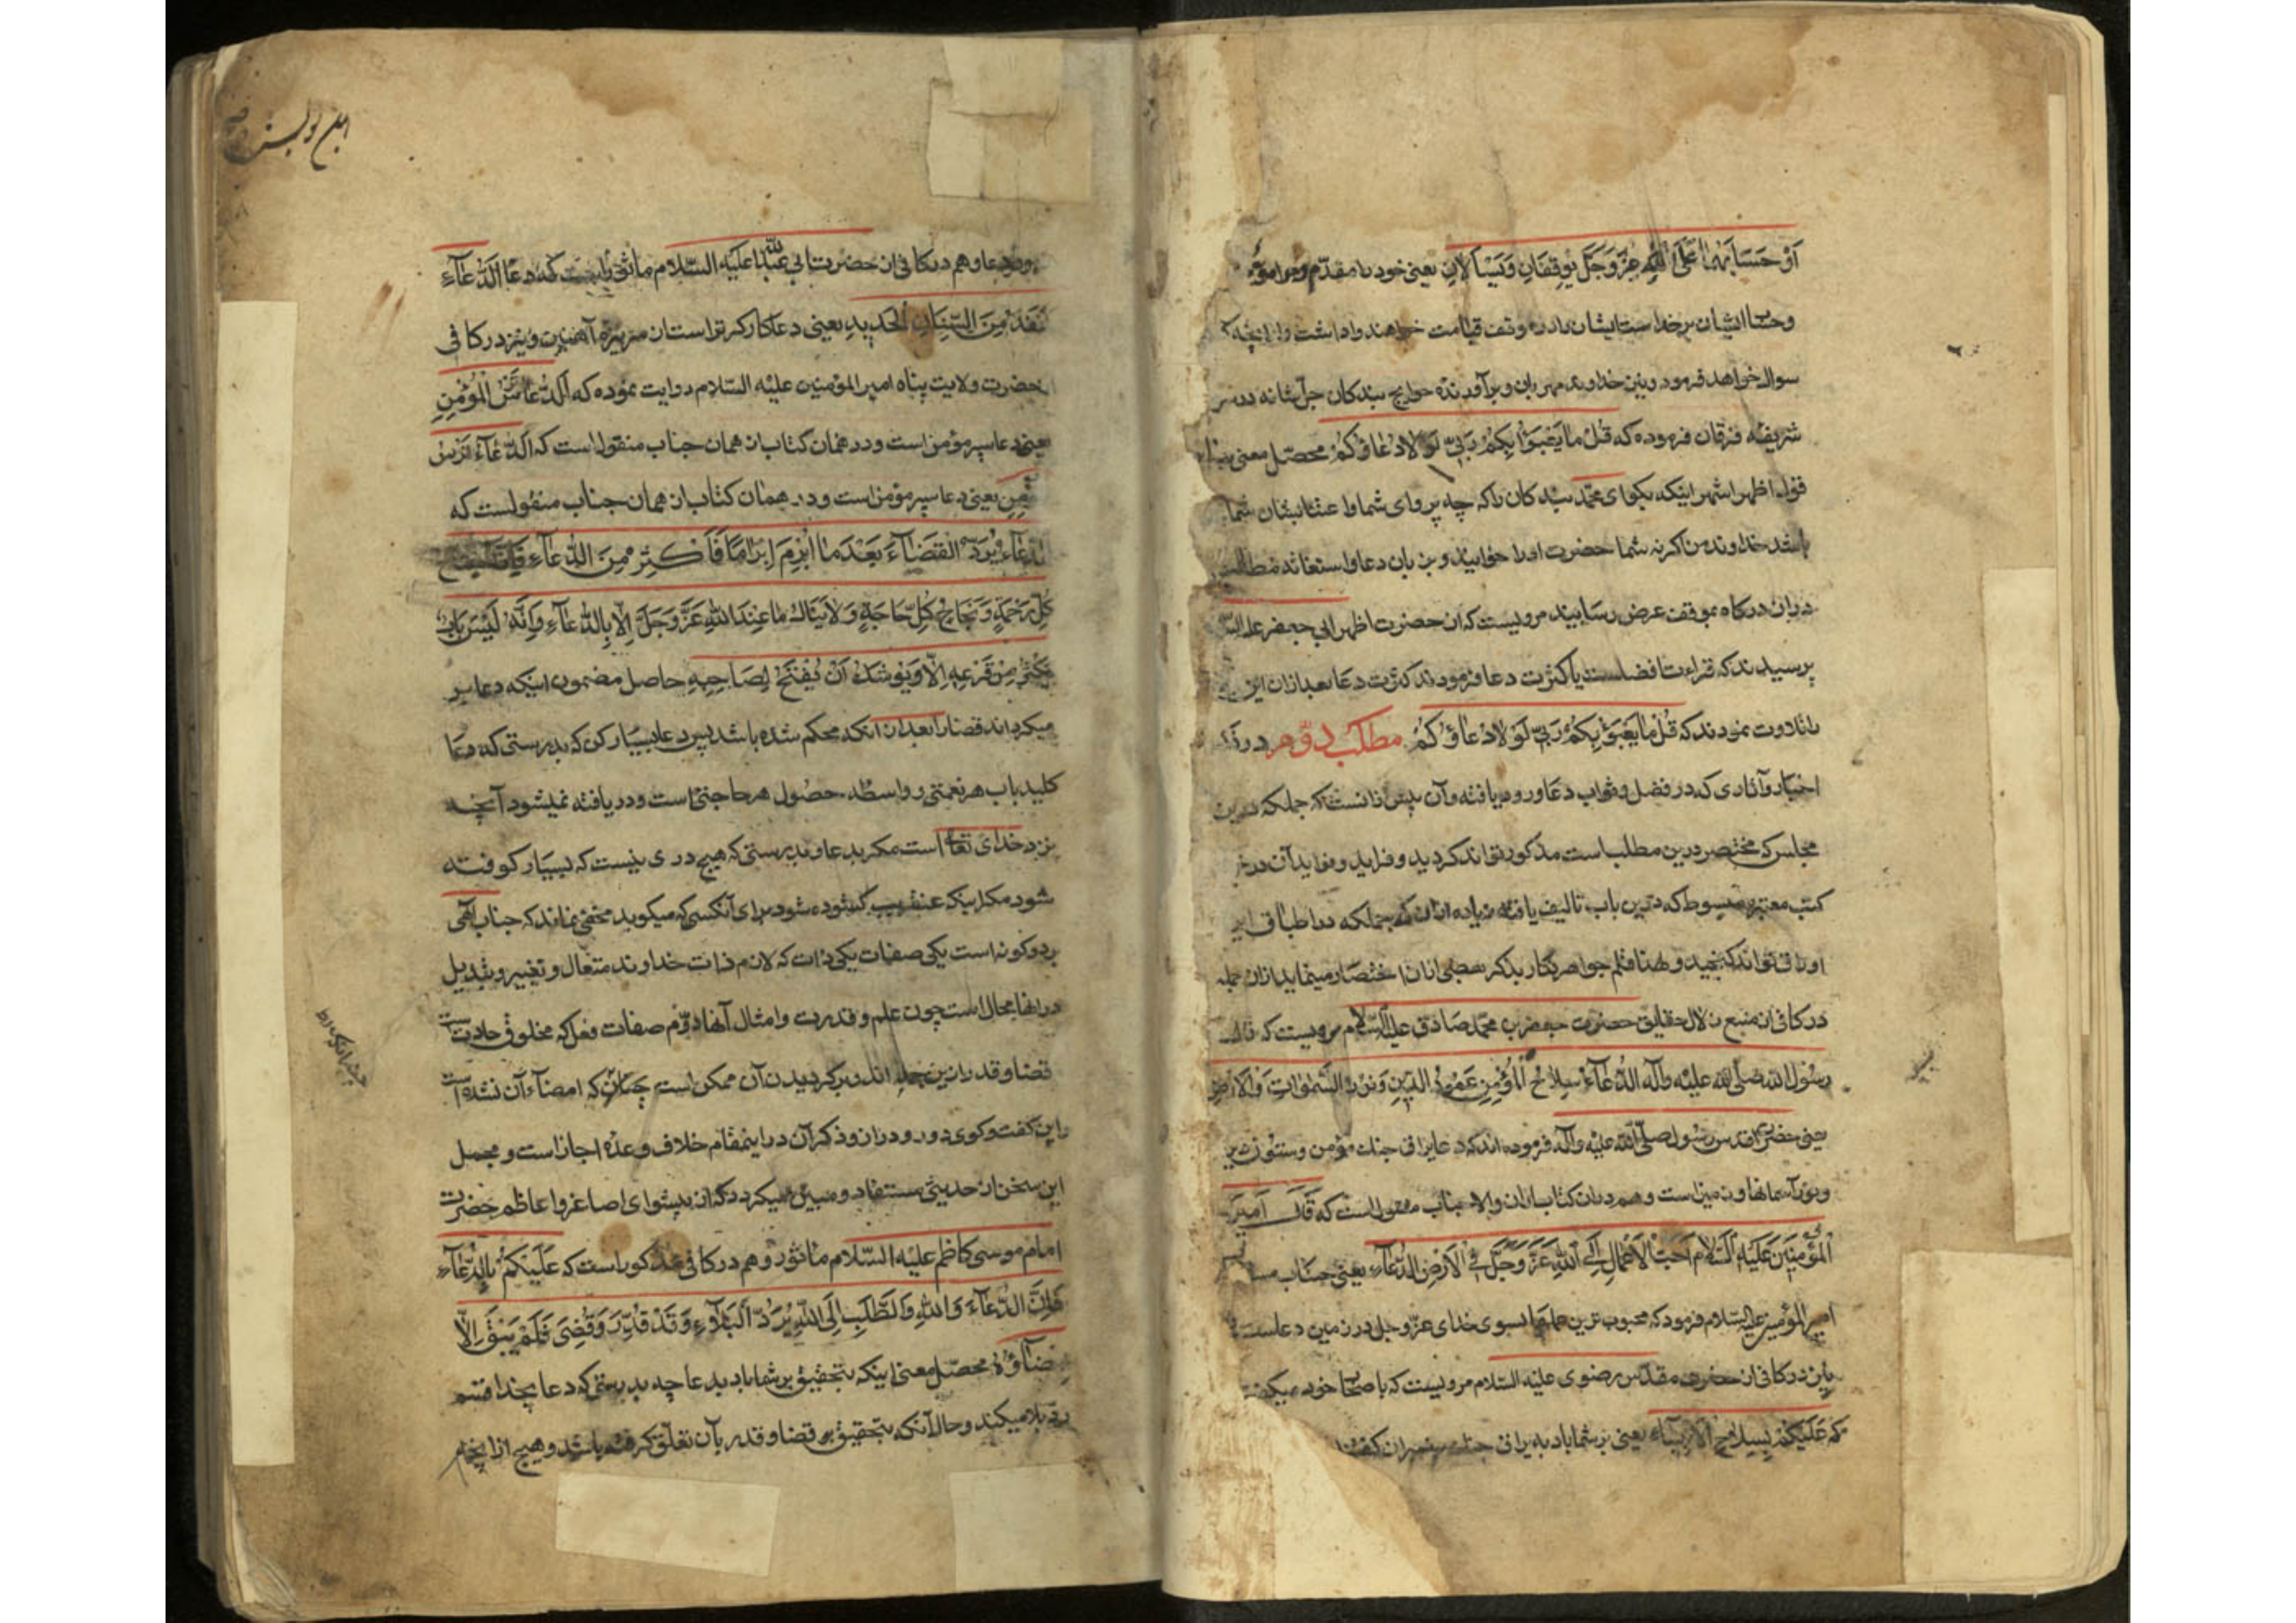 أَوْ حَسَابَهُمَا عَلَى اللّٰهِ عَزَّ وَجَلَّ يُوقَفَانِ وَيُسْأَلَانِ يعنى خود را مقدّم
وحساب ايشان بر خداست ايشان را در موقف قيامت خواهند واداشت و از آنچه
سوال خواهد فرمود ونيز خداوند مهربان وبرآورندهٔ حوايج بندكان جلّ شانه در
شريفهٔ فرقان فرموده كه قُلْ مَا يَعْبَؤُا بِكُمْ رَبِّى لَوْلَا دُعَاؤُكُمْ محصّل معنى بنا
قول اظهر اشهر اينكه بكو اى محمّد بندكان را كه چه پرواى شما واعتنا بشان شما
باشد خداوند من اكر نه شما حضرت او را خوانيد وبزبان دعا واستغاثه مطالب
در ان دركاه بموقف عرض رسانيد مرويست كه از حضرت اظهر ابى جعفر عليه السّ
پرسيدند كه قراءت افضلست يا كثرت دعا فرمودند كثرت دعا بعد ازان اين
را تلاوت نمودند كه قُلْ مَا يَعْبَؤُ بِكُمْ رَبِّى لَوْلَا دُعَاؤُكُمْ مطلب دوّم در
اخبار وآثارى كه در فضل وثواب دعا ورود يافته وآن بيش ازانست كه جملكه درين
مجلس كه مختصر درين مطلب است مذكور تواند كرديد وفرايد وفوايد آن در
كتب معتبره مبسوط كه درين باب تاليف يافته زياده ازان كه جملكه در اطباق اين
اوراق تواند كنجيد ولهذا قلم جواهر نكار بذكر بعضى ازان اختصار مينمايد ازان جمله
در كافى از منبع زلال حقايق حضرت جعفر بن محمّد صادق عليه السّلام مرويست كه قال
رسول الله صلّى الله عليه وآله الدُّعَآءُ سِلَاحُ الْمُؤْمِنِ عَمُودُ الدِّينِ وَنُورُ السَّمٰوَاتِ وَالْاَرْضِ
يعنى حضرت اقدس رسول صلّى الله عليه وآله فرموده اند كه دعا يراق جنك مؤمن وستون دين
ونور آسمانها وزمين است وهم دران كتاب ازان والا جناب منقول است كه قَالَ اَمِيرُ
الْمُؤْمِنِينَ عَلَيْهِ السَّلَام اَحَبُّ الْاَعْمَالِ اِلَى اللهِ عَزَّ وَجَلَّ فِى الْاَرْضِ الدُّعَآءُ يعنى جناب
امير المؤمنين عليه السّلام فرمود كه محبوب ترين عملها بسوى خداى عزّ وجل در زمين دعاست
در كافى از حضرت مقدّس رضوى عليه السّلام مرويست كه با صحاب خود ميكفت
كه عَلَيْكُمْ بِسِلَاحِ الْاَنْبِيَاءِ يعنى بر شما باد به يراق جنك پيغمبران كفتند
دعا وهم در كافى از حضرت ابى عبد اللّٰه عليه السّلام ماثور است كه دعا الدُّعَآءُ
اَنْفَذُ مِنَ السِّنَانِ الْحَدِيدِ يعنى دعا كاركرتر است از سر نيزه آهنين ونيز در كافى
حضرت ولايت پناه امير المؤمنين عليه السّلام روايت نموده كه اَلدُّعَا تُرْسُ الْمُؤْمِنِ
يعنى دعا سپر مؤمن است ودر همان كتاب از همان جناب منقول است كه اَلدُّعَآءُ تُرْسُ
مِنِ يعنى دعا سپر مؤمن است ودر همان كتاب از همان جناب منقولست كه
الدُّعَآءُ يُرَدُّ الْقَضَآءَ بَعْدَ مَا اُبْرِمَ اِبْرَامًا فَاَكْثِرْ مِنَ الدُّعَآءِ فَاِنَّهُ مِفْتَاحُ
كُلِّ رَحْمَةٍ وَنَجَاحُ كُلِّ حَاجَةٍ وَلَا يَنَالُ مَا عِنْدَ اللهِ عَزَّ وَجَلَّ اِلَّا بِالدُّعَآءِ وَاِنَّهُ لَيْسَ بَابٌ
يُكْثَرُ مِنْ قَرْعِهِ اِلَّا وَيُوشَكُ اَنْ يُفْتَحَ لِصَاحِبِهِ حاصل مضمون اينكه دعا بر
ميكرداند قضا را بعد ازان كه محكم شده باشد پس دعا بسيار كن كه بدرستى كه دعا
كليد باب هر نعمتى وواسطهٔ حصول هر حاجتى است ودر يافته نميشود آنچه
نزد خداى تعالى است مكر بدعا وبدرستى كه هيچ درى نيست كه بسيار كوفته
شود مكر اينكه عنقريب كشوده شود براى آنكسى كه ميكوبد مخفى نماند كه جناب الهى
بر دو كونه است يكى صفات يكى ذات كه لازم ذات خداوند متعال وتغيير وتبديل
در انها محال است چون علم وقدرت وامثال آنها دوّم صفات فعل كه مخلوق حادث است
قضا وقدر ازين جمله اند وبر كرديدن آن ممكن است چنان كه امضاء آن نشده است
واين كفت وكوى دور ودراز وذكر آن در اينمقام خلاف وعدهٔ اجاز است ومجمل
اين سخن از حديثى مستفاد ومبيّن ميكردد كه از پيشواى اصاغر واعاظم حضرت
امام موسى كاظم عليه السّلام ماثور وهم در كافى مذكور است كه عَلَيْكُمْ بِالدُّعَآءِ
فَاِنَّ الدُّعَآءَ وَاللهِ وَالطَّلَبِ اِلَى اللهِ يُرَدُّ الْبَلَآءِ وَقَدْ قُدِّرَ وَقُضِىَ فَلَمْ يَبْقَ اِلَّا
مْضَآؤُهُ محصّل معنى اينكه بتحقيق بر شما باد بدعا چه بدرستى كه دعا بخدا قسم
ردّ بلا ميكند وحال آنكه بتحقيق كه قضا وقدر بآن تعلّق كرفته باشد وهيچ از انجام